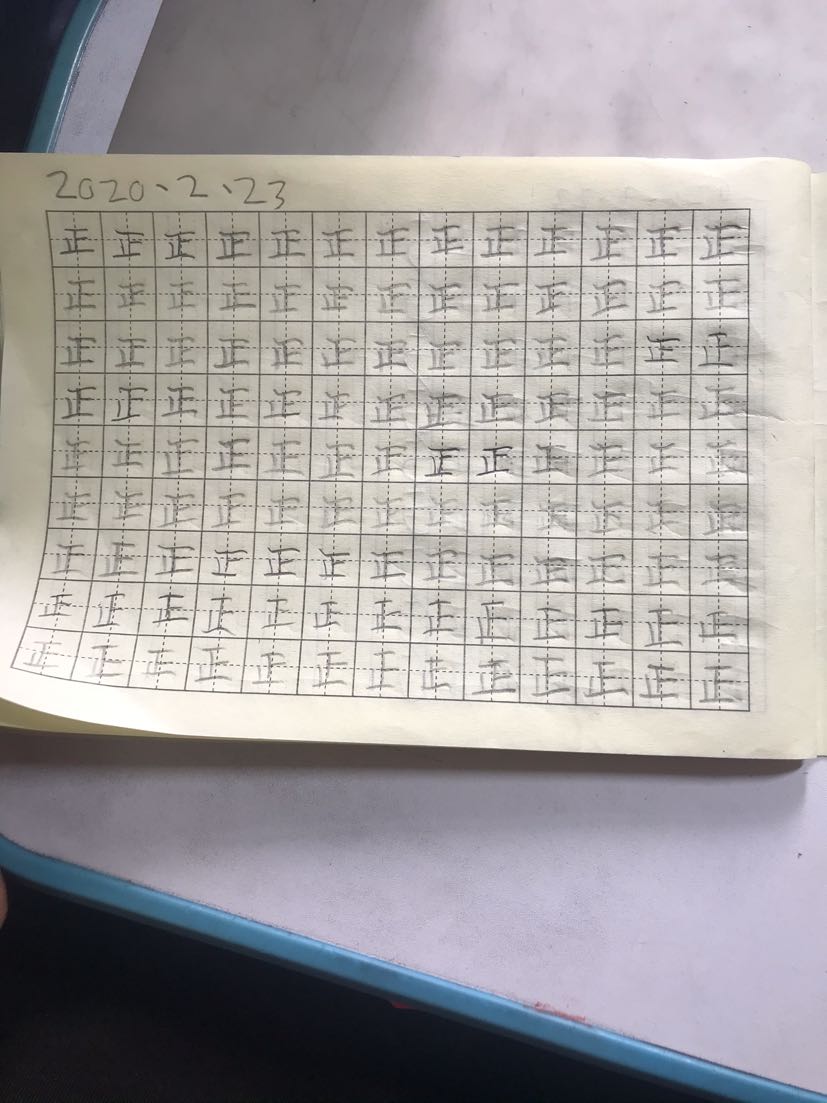 2020、2、23
正正正正正正正正正正正正正
正正正正正正正正正正正正正
正正正正正正正正正正正正正
正正正正正正正正正正正正正
正正正正正正正正正正正正正
正正正正正正正正正正正正正
正正正正正正正正正正正正正
正正正正正正正正正正正正正
正正正正正正正正正正正正正